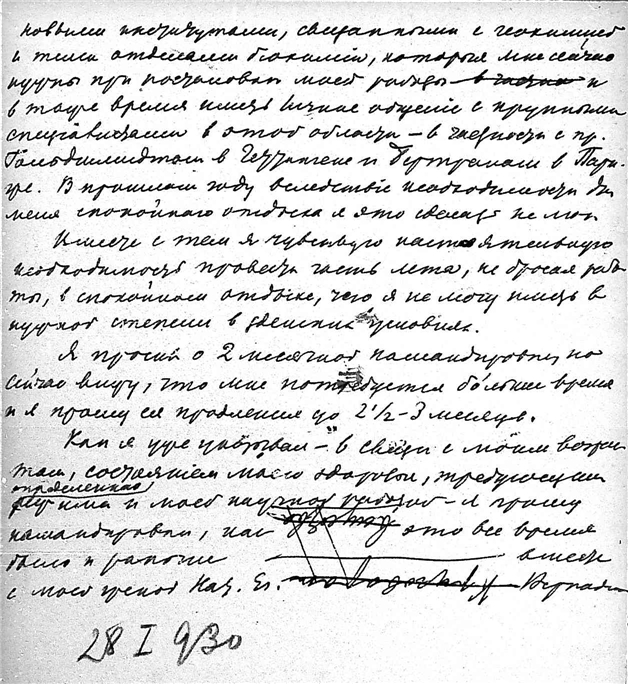 новыми институтами, связанными с геохимией
и теми отделами биохимии, которыя мне сейчас
нужны при постановке моей работы и
в то же время иметь личное общение с крупными
специалистами в этой области – в частности с пр.
Гольдшмидтом в Гёттингене и Бертраном в Пари-
же. В прошлом году вследствие необходимости для
меня спокойного отдыха я это сделать не мог
Вместе с тем я чувствую настоятельную
необходимость провести часть лета, не бросая рабо-
ты, в спокойном отдыхе, чего я не могу иметь в
нужной степени в здешних условиях.
Я просил о 2 месячной командировке, но
сейчас вижу, что мне потребуется больше времени
и я прошу ея продления до 2 1/2 – 3 месяцев.
Как я уже указывал – в связи с моим возрас-
том, состоянием моего здоровья, требующим
определенного
режима и моей научной работой – я прошу
командировки, как это все время
было и раньше вместе
с моей женой Нат. Ег. Вернадской
28 I 930